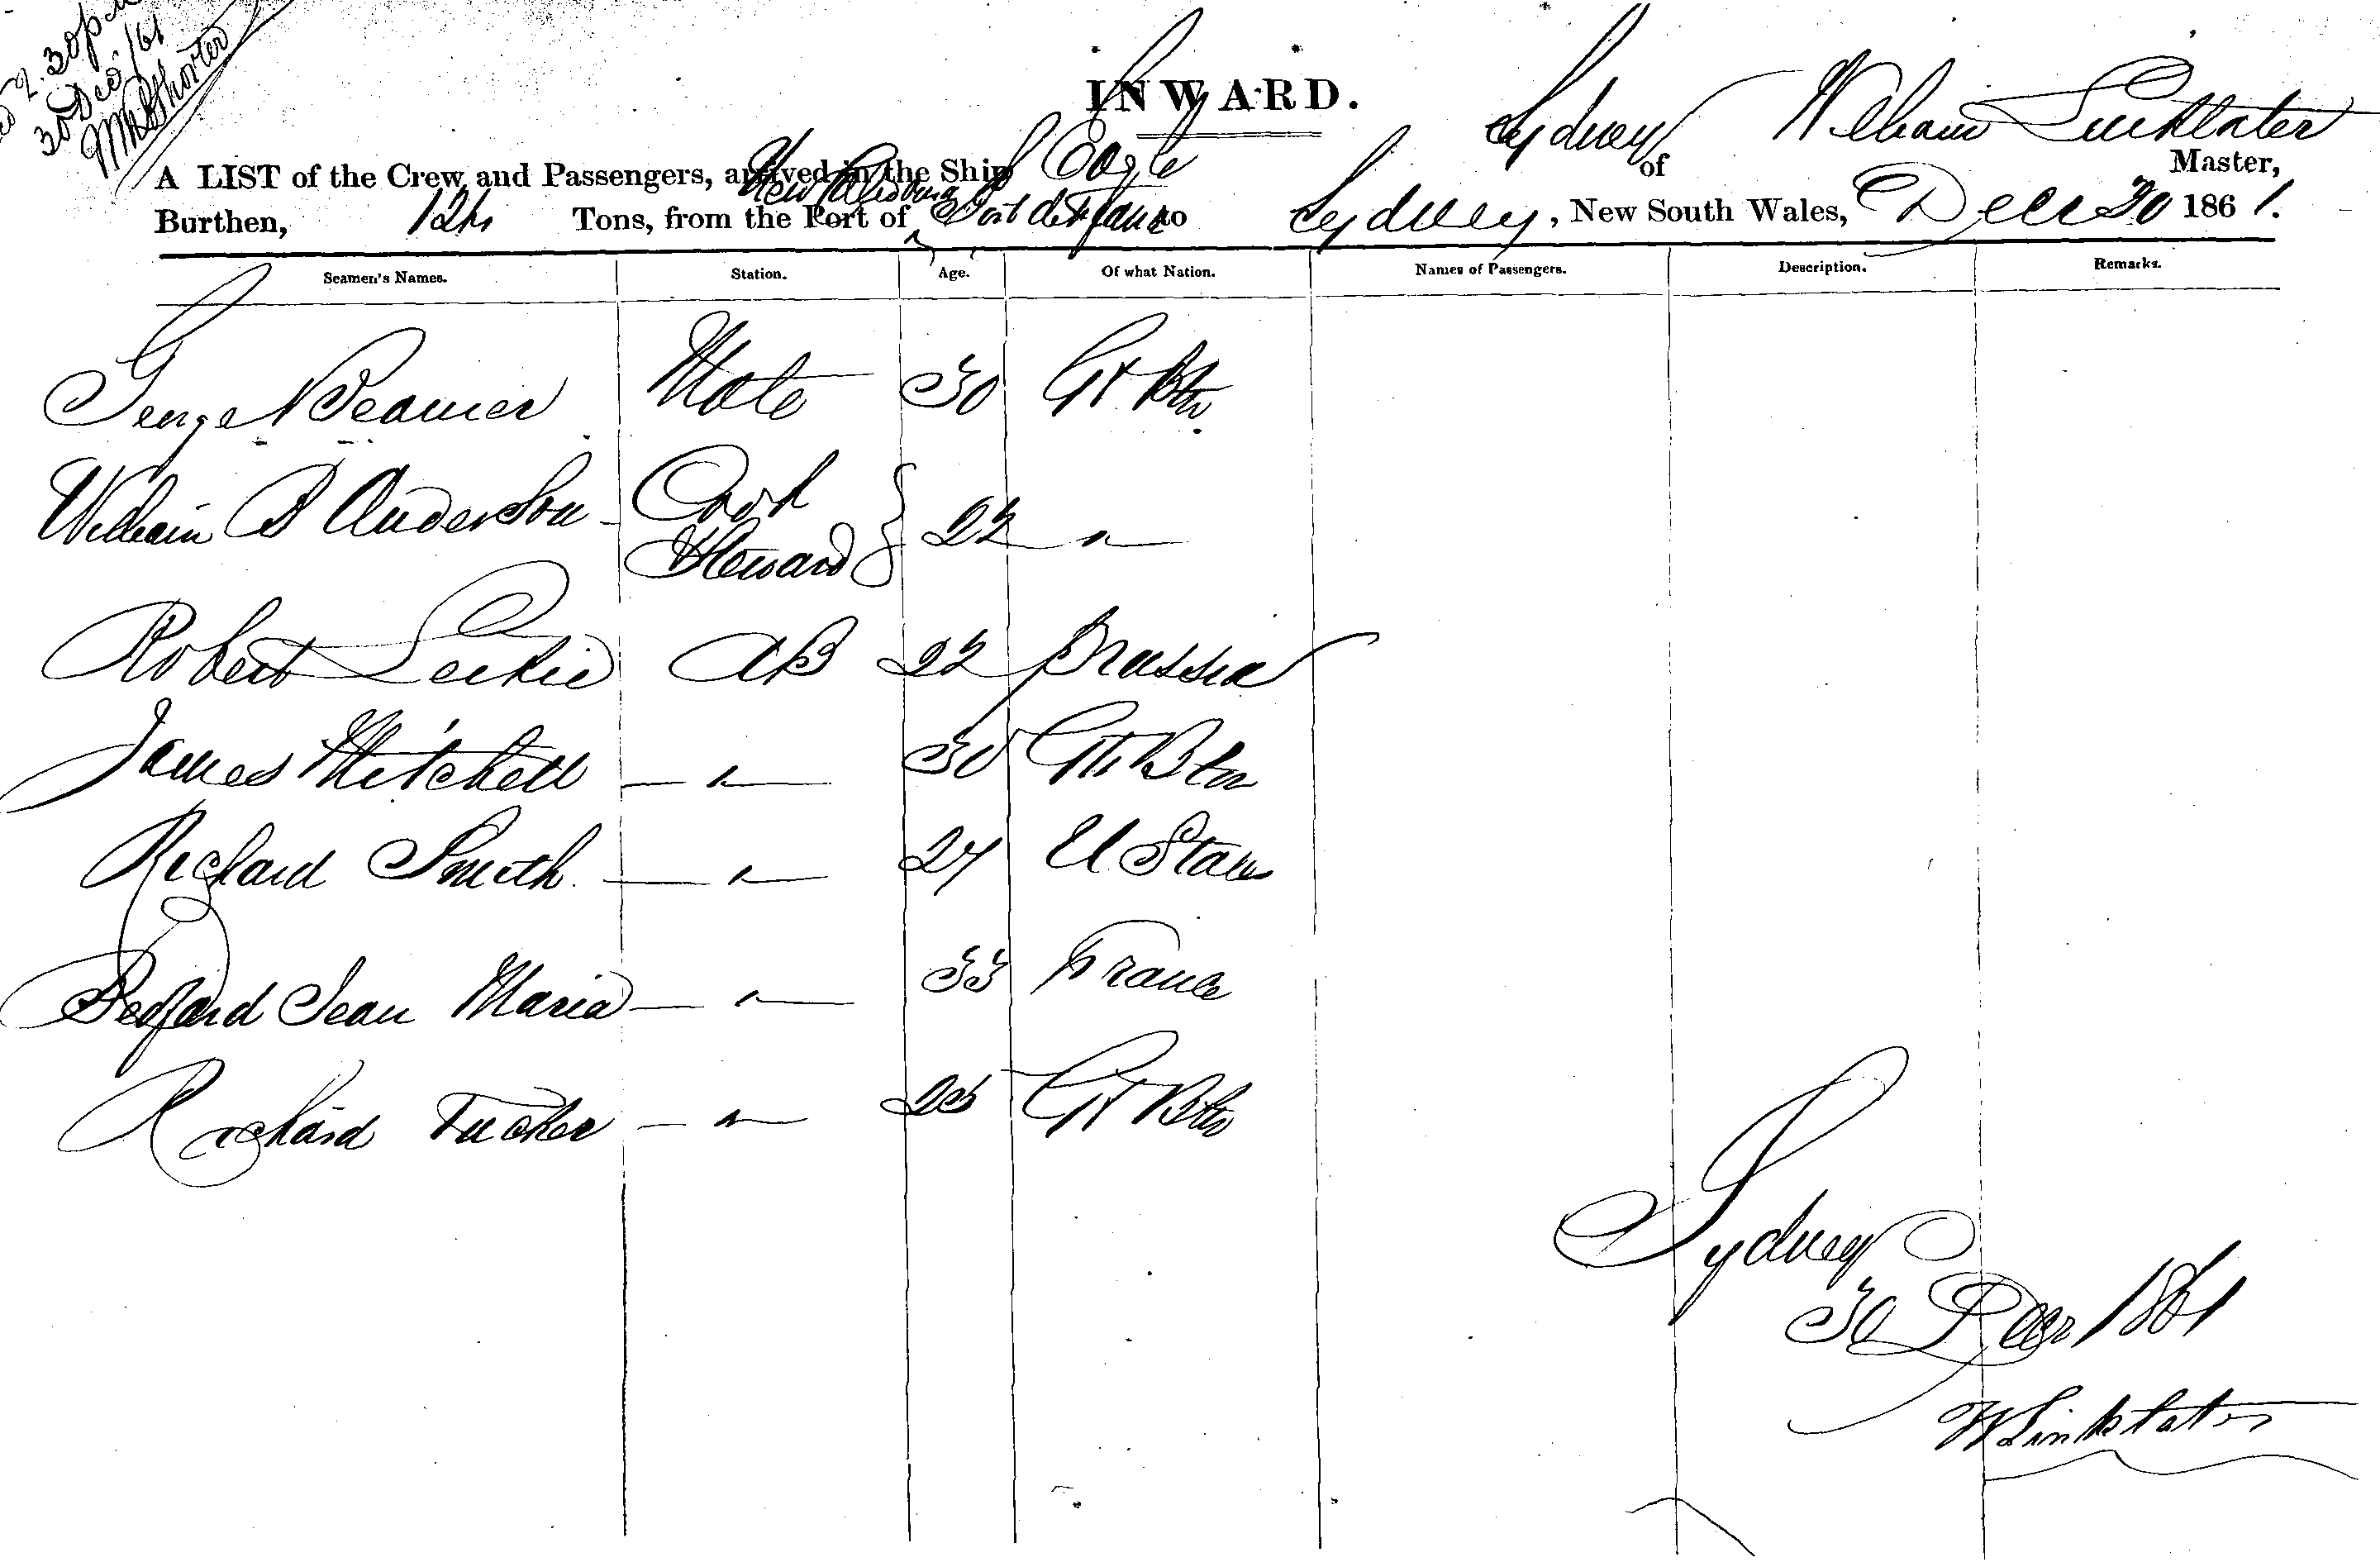 2.30 p
30 Dec /61
INWARD.
A LIST of the Crew and Passengers, arrived in the Ship Eagle Sydney of William Linklater Master,
Burthen, Tons, from the Port of New Caledonia Port de France to Sydney, New South Wales, Decr 30 1861.
Seamen's Names. Station. Age. Of what Nation. Names of Passengers. Description. Remarks.
George N Beamer Mate 30 Gt Btn
William B Anderson Cook Steward } 22 "
Robert Leckie AB 22 Prussia
James Mitchell " 30 Gt Btn
Richard Smith " 27 U States
Jean Maria " 33 France
Richard Tucker " Gt Btn
Sydney
30 Decr 1861
W Linklater